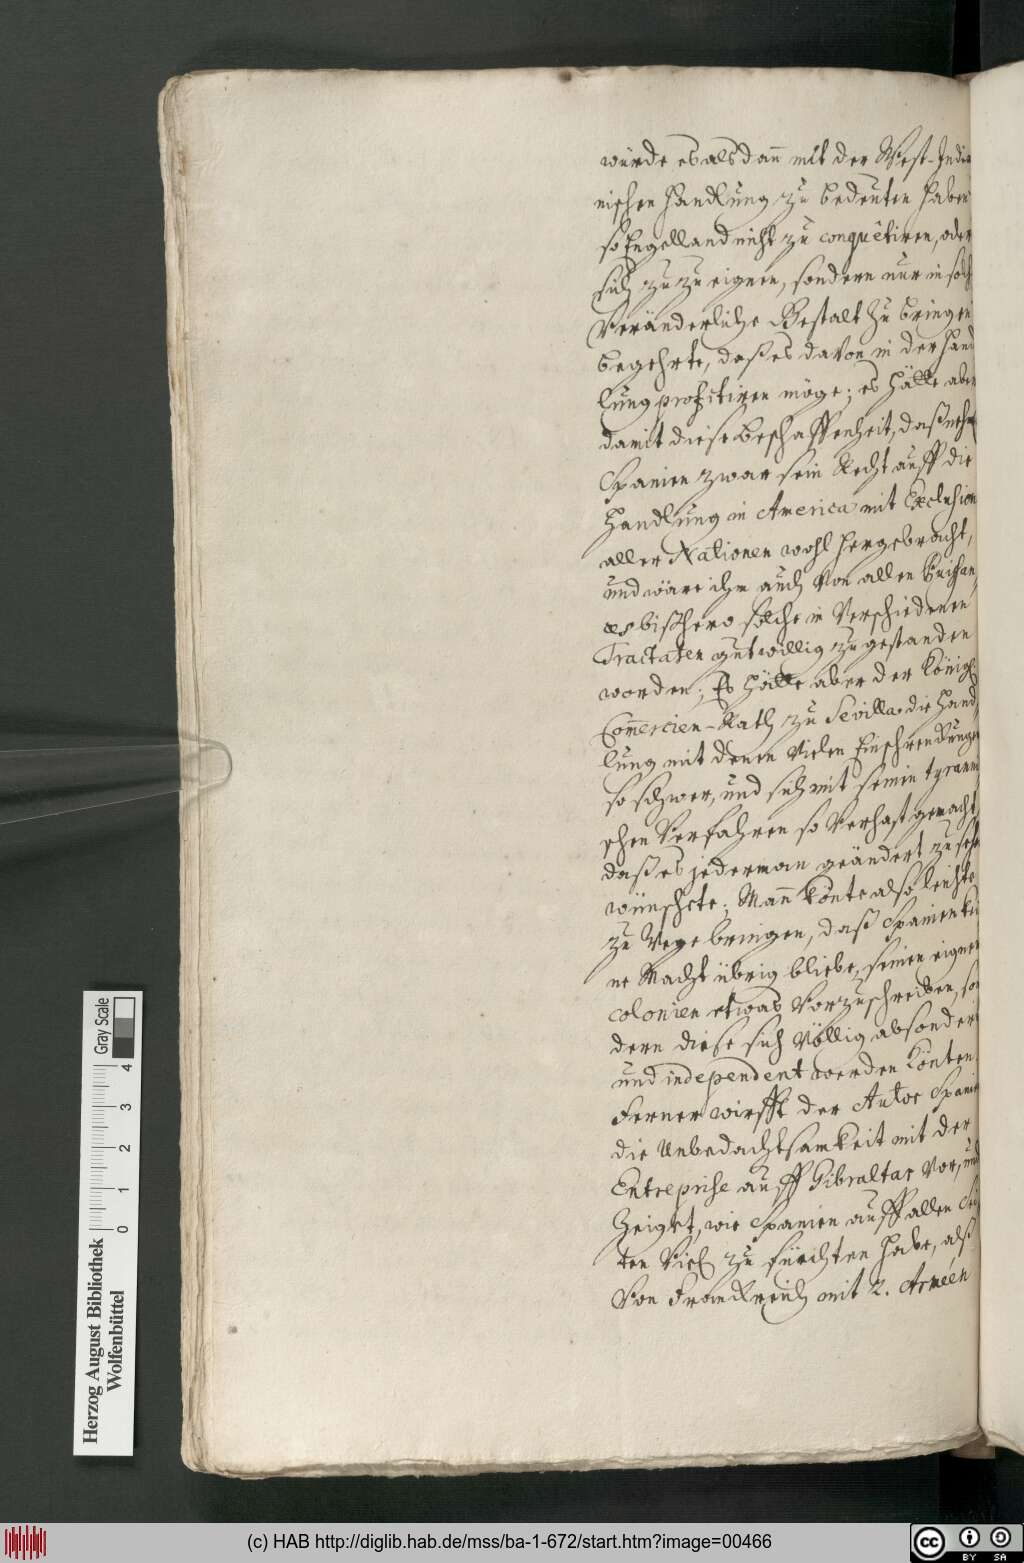 würde es alsdan̄ mit der West-India
nischen Handlung zu bedeuten haben
so Engelland nicht zu conquêtiren, oder
sich zuzueignen, sondern nur in solch
Veränderliche Gestalt Zu bringen
begehrte, daß es davon in der Hand
lung profitiren möge; es hätte aber
damit diese beschaffenheit, daß
Spanien zwar sein Recht auff die
Handlung in America mit Exclusion
aller Nationen wohl hergebracht,
und wäre ihm auch Von allen Puissan,
ces bißhero solche in Verschiedenen
Tractaten gutwillig zugestanden
worden; Es hätte aber der Königl:
Com̄ercien-Rath zu Sevilla die Hand,
lung mit denen Vielen Einschrenckungen
so schwer, und sich mit seinen tyranni
schen Verfahren so Verhast gemacht,
daß es jederman geändert zu sehn
wünschete; Man̄ könte also leichte
zu Wege bringen, daß Spanien kei
ne Macht übrig bliebe, seinen eignen
colonien etwas Vorzuschreiben, son
dern diese sich Völlig absondern
und independent werden könten.
Ferner wirfft der Autor Spanien
die Unbedachtsamkeit mit der
Entreprise auff Gibraltar Vor, und
Zeiget, wie Spanien auff allen Sei
ten Viel zu fürchten habe, alß
Von Franckreich mit 2. Arméen
Herzog August Bibliothek
Wolfenbüttel
0 1 2 3 4
Gray Scale
(c) HAB http://diglib.hab.de/mss/ba-1-672/start.htm?image=00466
cc BY SA